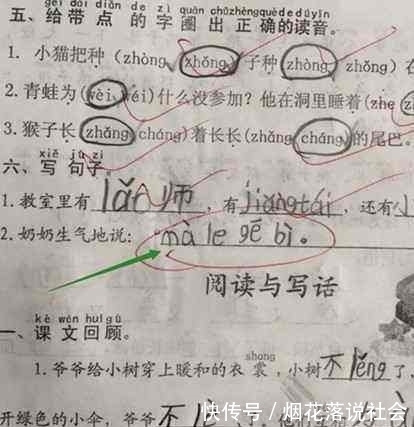 gěi dài diǎn de zì quān chū zhèng què de dú yīn
五、给带点的字圈出正确的读音。
1. 小猫把种(zhòng zhǒng)子种(zhòng zhǒng)在
2. 青蛙为(wèi wéi)什么没参加?他在洞里睡着(zhe
3. 猴子长(zhǎng cháng)着长长(zhǎng cháng)的尾巴。
xiě jù zi
六、写句子。
1. 教室里有lǎo师,有jiǎngtái,还有
2. 奶奶生气地说:mà le gē bì。
阅读与写话
kè wén huí gù
一、课文回顾。
shang
1. 爷爷给小树穿上暖和的衣裳,小树不lěng了,
开绿色的小伞,爷爷不
快传号/烟花落说社会